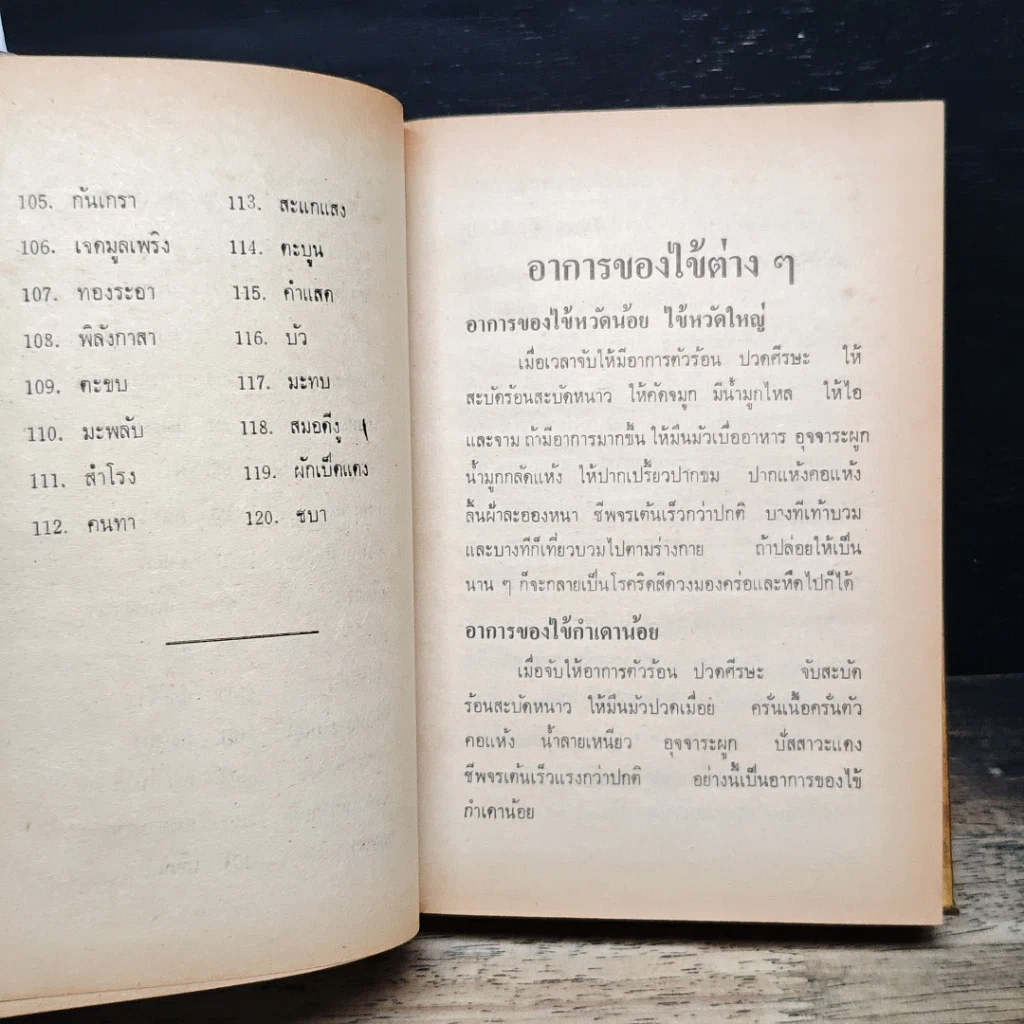 105. กันเกรา
106. เจตมูลเพริง
107. ทองระอา
108. พิลังกาสา
109. ตะขบ
110. มะพลับ
111. สำโรง
112. คนทา
113. สะแกแสง
114. ตะบูน
115. คำแสด
116. บัว
117. มะทบ
118. สมอดีงู
119. ผักเป็ดแดง
120. ชบา
อาการของไข้ต่าง ๆ
อาการของไข้หวัดน้อย ไข้หวัดใหญ่
เมื่อเวลาจับให้มีอาการตัวร้อน ปวดศีรษะ ให้
สะบัดร้อนสะบัดหนาว ให้คัดจมูก มีน้ำมูกไหล ให้ไอ
และจาม ถ้ามีอาการมากขึ้น ให้มึนมัวเบื่ออาหาร อุจจาระผูก
น้ำมูกกลัดแห้ง ให้ปากเปรี้ยวปากขม ปากแห้งคอแห้ง
ลิ้นฝ้าละอองหนา ชีพจรเต้นเร็วกว่าปกติ บางทีเท้าบวม
และบางทีก็เที่ยวบวมไปตามร่างกาย ถ้าปล่อยให้เป็น
นาน ๆ ก็จะกลายเป็นโรคริดสีดวงมองคร่อและหืดไปก็ได้
อาการของไข้กำเดาน้อย
เมื่อจับให้อาการตัวร้อน ปวดศีรษะ จับสะบัด
ร้อนสะบัดหนาว ให้มึนมัวปวดเมื่อย ครั่นเนื้อครั่นตัว
คอแห้ง น้ำลายเหนียว อุจจาระผูก ปัสสาวะแดง
ชีพจรเต้นเร็วแรงกว่าปกติ อย่างนี้เป็นอาการของไข้
กำเดาน้อย